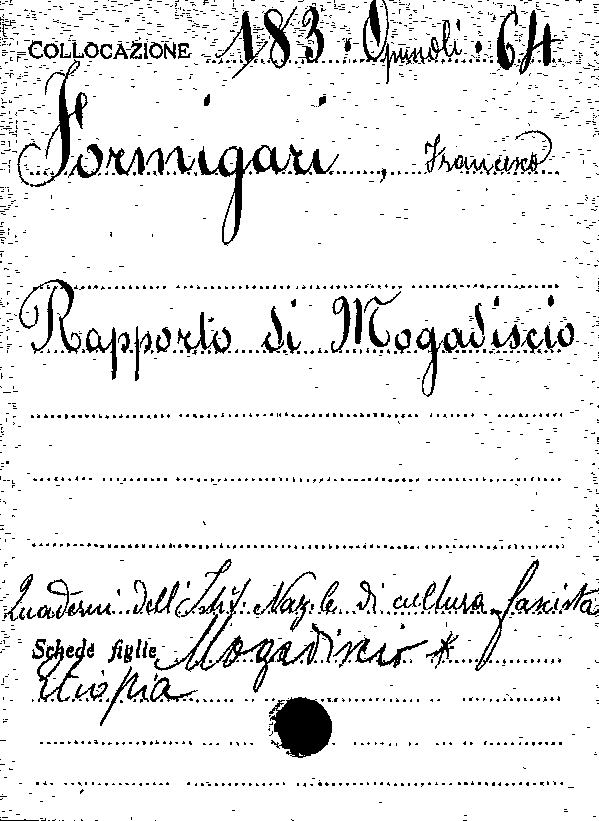 COLLOCAZIONE 183 · Opuscoli · 64
Formigari, Francesco
Rapporto di Mogadiscio
Quaderni dell'Istit. Naz.le di cultura fascista
Schede figlie Mogadiscio *
Etiopia